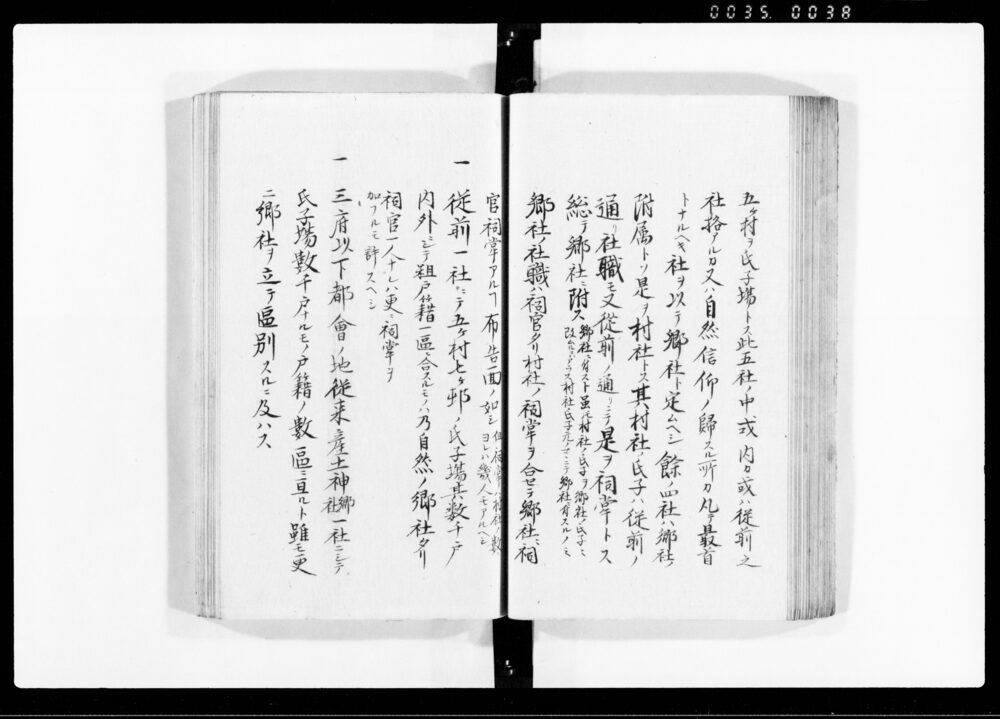 0035. 0038
五ケ村ヲ氏子場トス此五社ノ中或ハ式内カ或ハ従前之
社格アルカ又ハ自然信仰ノ歸スル所カ凡テ最首
トナルヘキ社ヲ以テ郷社ト定ムヘシ餘ノ四社ハ郷社ノ
附属トシ是ヲ村社トス其村社ノ氏子ハ従前ノ
通リ社職モ又従前ノ通リニテ是ヲ祠掌トス
総テ郷社ニ附ス
郷社ニ附スト雖モ村社ノ氏子ヲ郷社ノ氏子ニ
改ムルニアラス村社氏子元ノマヽニテ郷社ニ附スルノミ
郷社ノ社職ハ祠官タリ村社ノ祠掌ヲ合セテ郷社ニ祠
官祠掌アルヿ布告面ノ如シ
但祠掌ハ村社ノ数
ヨレハ幾人モアルヘシ
一 従前一社ニテ五ケ村七ケ邨ノ氏子場其数千戸
内外ニシテ粗戸籍一區ニ合スルモノハ乃自然ノ郷社タリ
祠官一人ナレハ更ニ祠掌ヲ
加フルモ許スヘシ
一 三府以下都會ノ地従来産土神
郷
社
一社ニシテ
氏子場數千戸ナルモノ戸籍ノ數區ニ亘ルト雖モ更
ニ郷社ヲ立テ區別スルニ及ハス